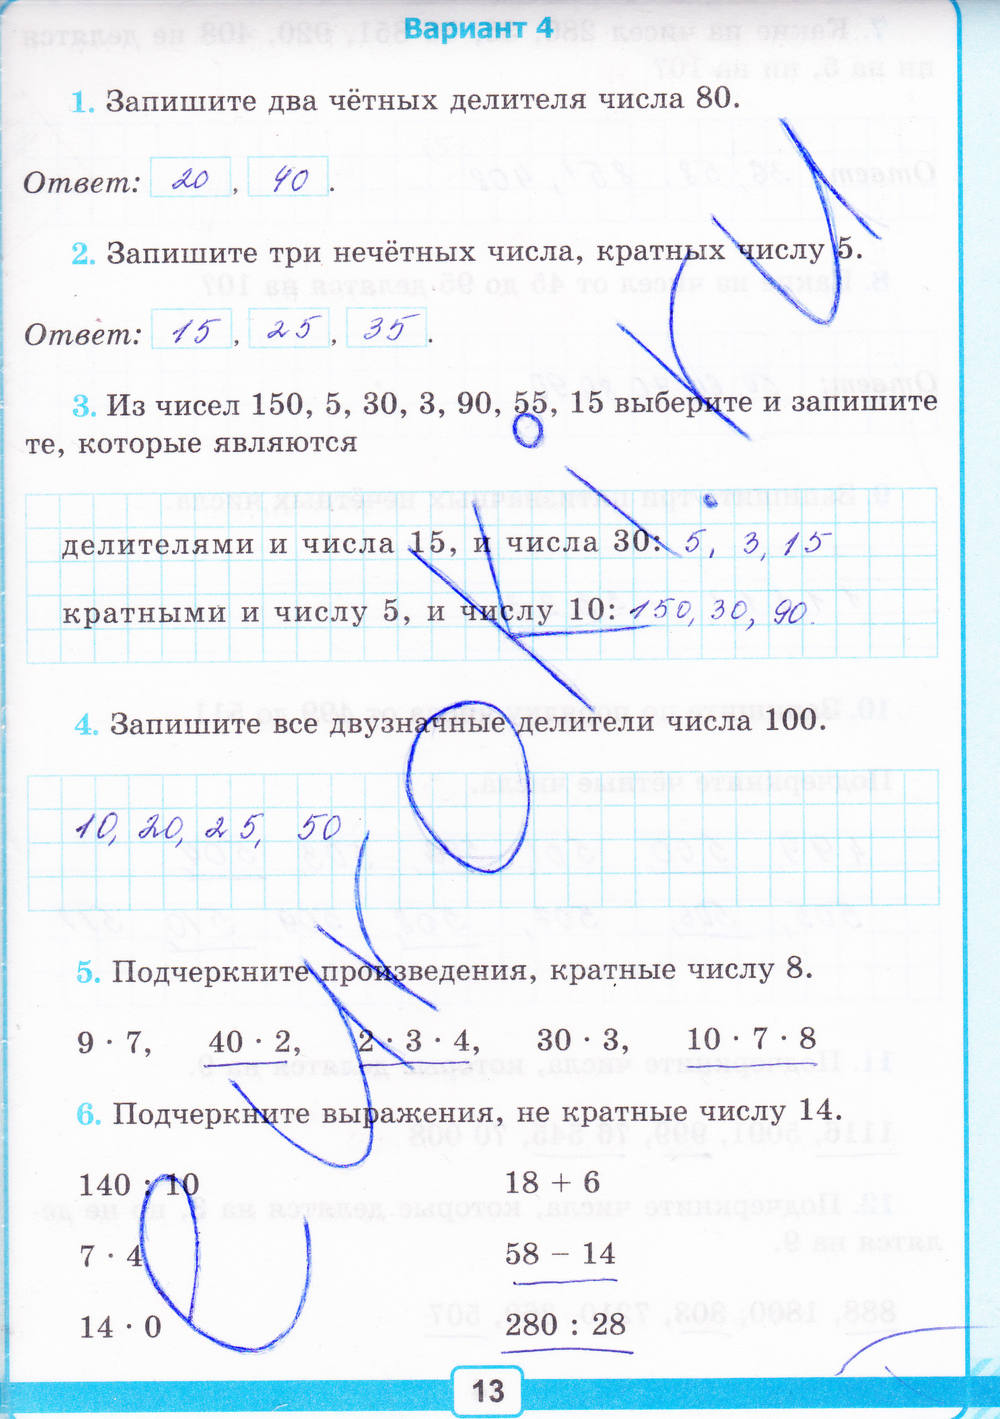 Вариант 4
1. Запишите два чётных делителя числа 80.
Ответ: 20, 40.
2. Запишите три нечётных числа, кратных числу 5.
Ответ: 15, 25, 35.
3. Из чисел 150, 5, 30, 3, 90, 55, 15 выберите и запишите
те, которые являются
делителями и числа 15, и числа 30: 5, 3, 15
кратными и числу 5, и числу 10: 150, 30, 90.
4. Запишите все двузначные делители числа 100.
10, 20, 25, 50
5. Подчеркните произведения, кратные числу 8.
9 · 7, 40 · 2, 2 · 3 · 4, 30 · 3, 10 · 7 · 8
6. Подчеркните выражения, не кратные числу 14.
140 : 10 18 + 6
7 · 4 58 − 14
14 · 0 280 : 28
13